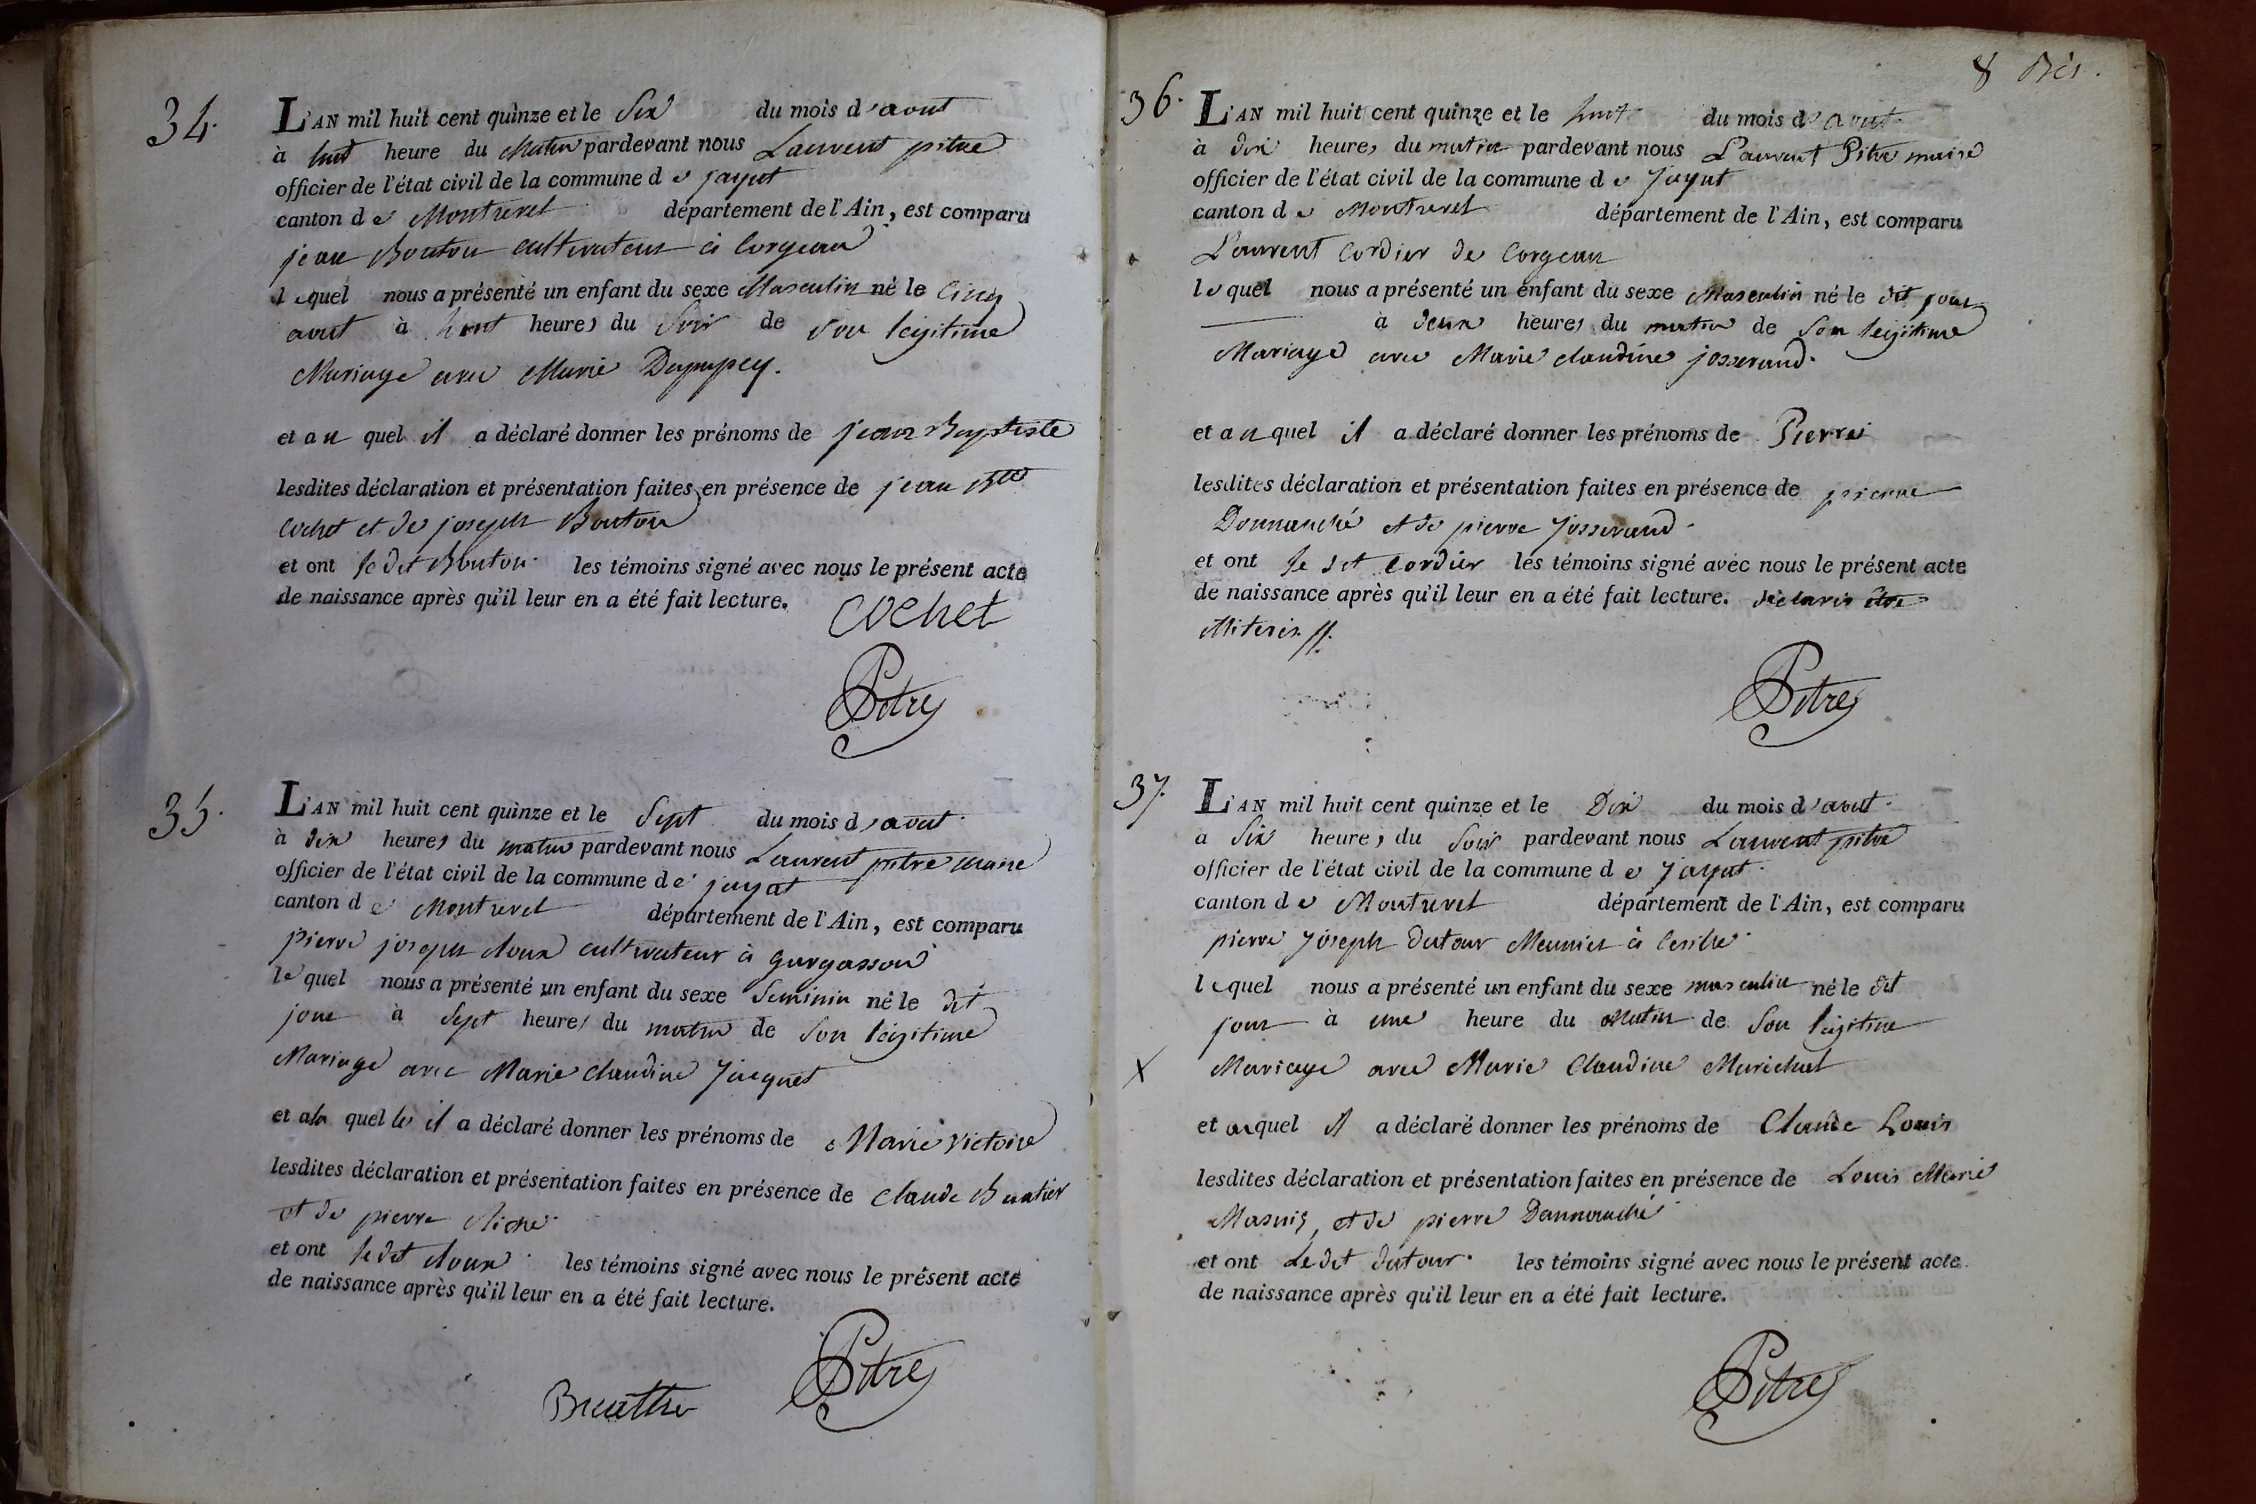 34.
L'AN mil huit cent quinze et le Six du mois d'aout
à huit heure du Matin pardevant nous Laurent pitre
officier de l'état civil de la commune de jayat
canton de Montrevel département de l'Ain, est comparu
jean Bouton cultivateur à Corgeau
lequel nous a présenté un enfant du sexe Masculin né le Cinq
aout à huit heures du Soir de Son légitime
Mariage avec Marie
et au quel il a déclaré donner les prénoms de jean Baptiste
lesdites déclaration et présentation faites en présence de jean Bte
Cochet et de joseph Bouton
et ont le dit Bouton les témoins signé avec nous le présent acte
de naissance après qu'il leur en a été fait lecture.
Cochet
Pitre
35.
L'AN mil huit cent quinze et le Sept du mois d'aout
à dix heures du matin pardevant nous Laurent pitre maire
officier de l'état civil de la commune de jayat
canton de Montrevel département de l'Ain, est comparu
pierre joseph cultivateur à
lequel nous a présenté un enfant du sexe feminin né le dit
jour à Sept heures du matin de Son légitime
Mariage avec Marie Claudine Jacquet
et a la quelle il a déclaré donner les prénoms de Marie Victoire
lesdites déclaration et présentation faites en présence de Claude
et de pierre
et ont le dit les témoins signé avec nous le présent acte
de naissance après qu'il leur en a été fait lecture.
Pitre
8 Bis.
36.
L'AN mil huit cent quinze et le huit du mois d'aout
à dix heures du matin pardevant nous Laurent Pitre maire
officier de l'état civil de la commune de Jayat
canton de Montrevel département de l'Ain, est comparu
Laurent Cordier de Corgeau
lequel nous a présenté un enfant du sexe Masculin né le dit jour
à deux heures du matin de Son légitime
Mariage avec Marie claudine josserand.
et au quel il a déclaré donner les prénoms de Pierre
lesdites déclaration et présentation faites en présence de pierre
Donnanché et de pierre Josserand.
et ont le dit Cordier les témoins signé avec nous le présent acte
de naissance après qu'il leur en a été fait lecture.
Pitre
37.
L'AN mil huit cent quinze et le Dix du mois d'aout
a Six heures du Soir pardevant nous Laurent pitre
officier de l'état civil de la commune de Jayat
canton de Montrevel département de l'Ain, est comparu
pierre Joseph dutour Meunier à
lequel nous a présenté un enfant du sexe masculin né le dit
jour à une heure du Matin de Son légitime
X Mariage avec Marie Claudine Marechal
et au quel il a déclaré donner les prénoms de Claude Louis
lesdites déclaration et présentation faites en présence de Louis Marie
et de pierre Donnanché
et ont Le dit dutour les témoins signé avec nous le présent acte
de naissance après qu'il leur en a été fait lecture.
Pitre